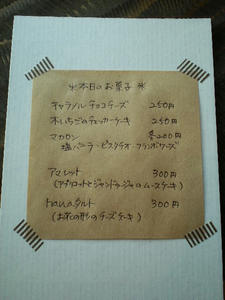 *本日のお菓子*
キャラメルチョコチーズ 250円
木いちごのチェッカーケーキ 250円
マカロン 各200円
塩バニラ・ピスタチオ・フランボワーズ
アマレット 300円
(アプリコットとジャンドゥージャのムースケーキ)
hanaタルト 300円
(お花の形のチーズケーキ)